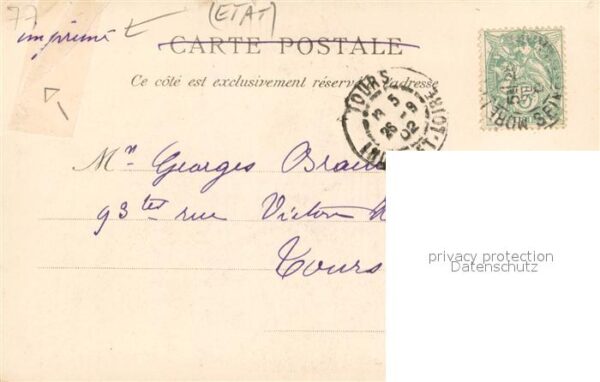 77
(ETAT)
imprimé
CARTE POSTALE
Ce côté est exclusivement réservé à l'adresse
TOURS
5
26 - 9
02
INDRE-ET-LOIRE
5
Mr Georges
93 ter rue Victor
Tours
privacy protection
Datenschutz